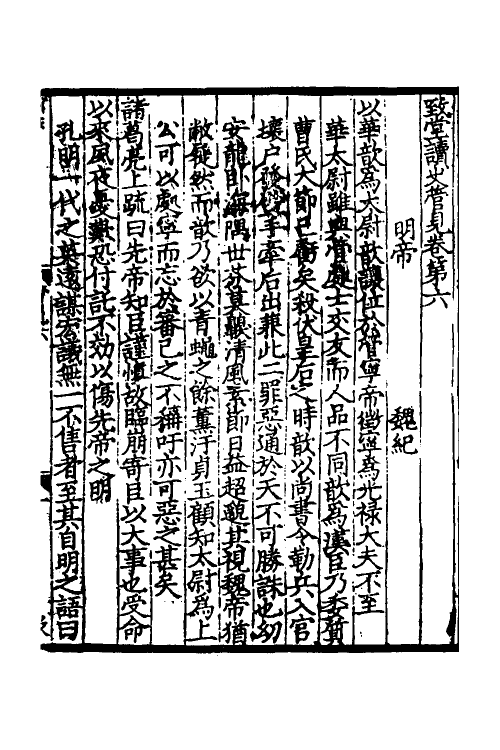 致堂讀史管見卷第六
明帝　魏紀
以華歆為太尉歆讓位於管寧帝徵寧為光祿大夫不至
華太尉雖與管處士交友而人品不同歆為漢臣乃委質
曹氏大節已虧矣殺伏皇后之時歆以尚書令勒兵入宮
壞戶發壁手牽后出粢此二罪惡通於天不可勝誅也幼
安龍臥海隅世莫驥清風素節日益超邈其視魏帝猶
敝屣然而歆乃欲以青蠅之餘薰汙貞玉顧知太尉為上
公可以處寧而忘於審己之不稱吁亦可惡之甚矣
諸葛亮上疏曰先帝知臣謹慎故臨崩寄臣以大事也受命
以來夙夜憂歎恐付託不効以傷先帝之明
孔明一代之英遠謀宏議無一不售者至其自明之語曰